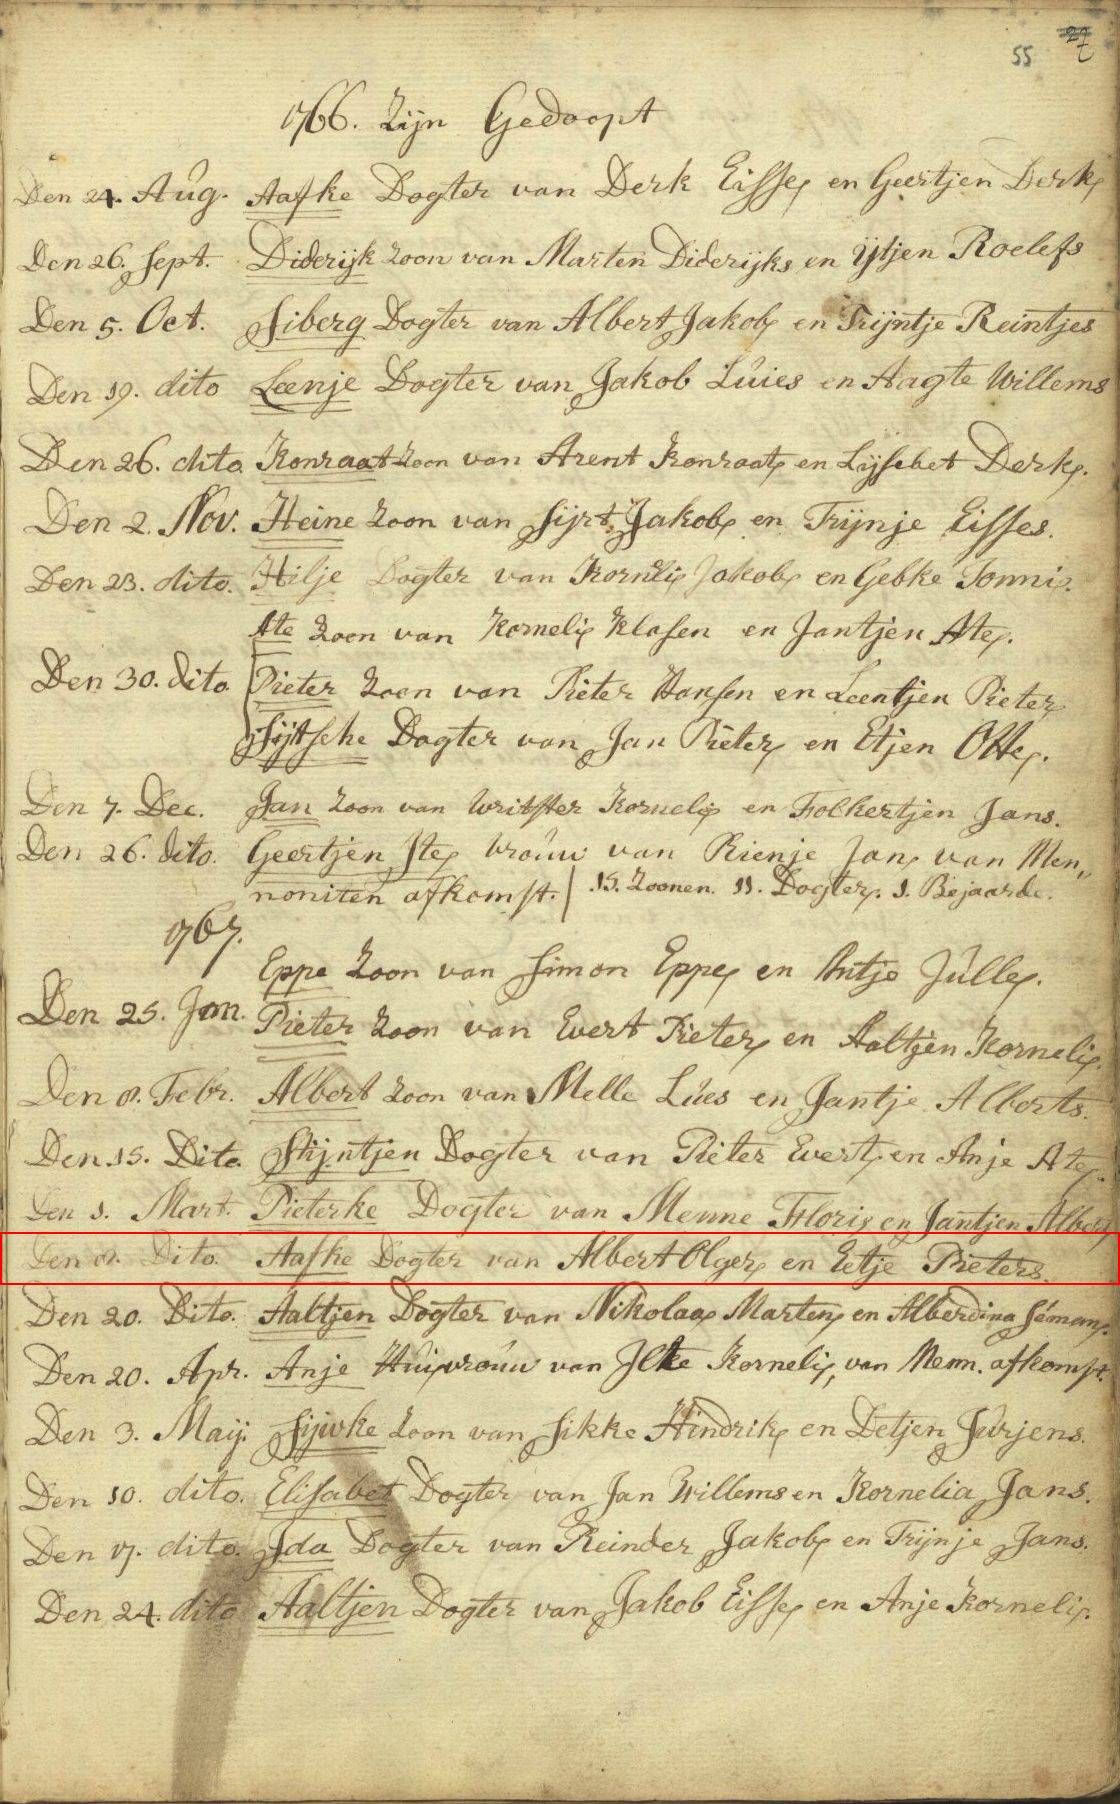 55 27
1766. Zijn Gedoopt
Den 24. Aug. Aafke Dogter van Derk Eisses en Geertjen Derks
Den 26. Sept. Diderijk Zoon van Marten Diderijks en Ytjen Roelefs
Den 5. Oct. Siberg Dogter van Albert Jakobs en Trijntje Reintjes
Den 19. dito Leenje Dogter van Jakob Luies en Aagte Willems
Den 26. dito Konraat Zoon van Arent Konraats en Lijsebet Derks.
Den 2. Nov. Heine Zoon van Sijrt Jakobs en Trijnje Eisses.
Den 23. dito. Hilje Dogter van Kornelis Jakobs en Gebke Tonnis.
Ate Zoon van Kornelis Klasen en Jantjen Ates.
Den 30. dito Pieter Zoon van Pieter Hansen en Leentjen Pieters
Sijtsche Dogter van Jan Pieters en Etjen Ottes.
Den 7. Dec. Jan Zoon van Writster Kornelis en Folkertjen Jans.
Den 26. dito. Geertjen Ites vrouw van Rienje Jans van Men„
noniten afkomst. | 15. Zoonen. 11. Dogters. 1. Bejaarde.
1767.
Eppe Zoon van Simon Eppes en Antje Julles.
Den 25. Jan. Pieter Zoon van Evert Pieters en Aaltjen Kornelis.
Den 8. Febr. Albert Zoon van Melle Lues en Jantje Alberts.
Den 15. Dito. Stijntjen Dogter van Pieter Everts en Anje Ates.
Den 1. Mart. Pieterke Dogter van Menne Floris en Jantjen Alberts
Den 8. Dito. Aafke Dogter van Albert Olgers en Eetje Pieters.
Den 20. Dito. Aaltjen Dogter van Nikolaas Martens en Alberdina Sémans.
Den 20. Apr. Anje Huisvrouw van Jlke Kornelis, van Menn. afkomst.
Den 3. Maij. Sijwke Zoon van Sikke Hindriks en Detjen Jurjens.
Den 10. dito. Elisabet Dogter van Jan Willems en Kornelia Jans.
Den 17. dito. Ida Dogter van Reinder Jakobs en Trijnje Jans.
Den 24. dito Aaltjen Dogter van Jakob Eisses en Anje Kornelis.